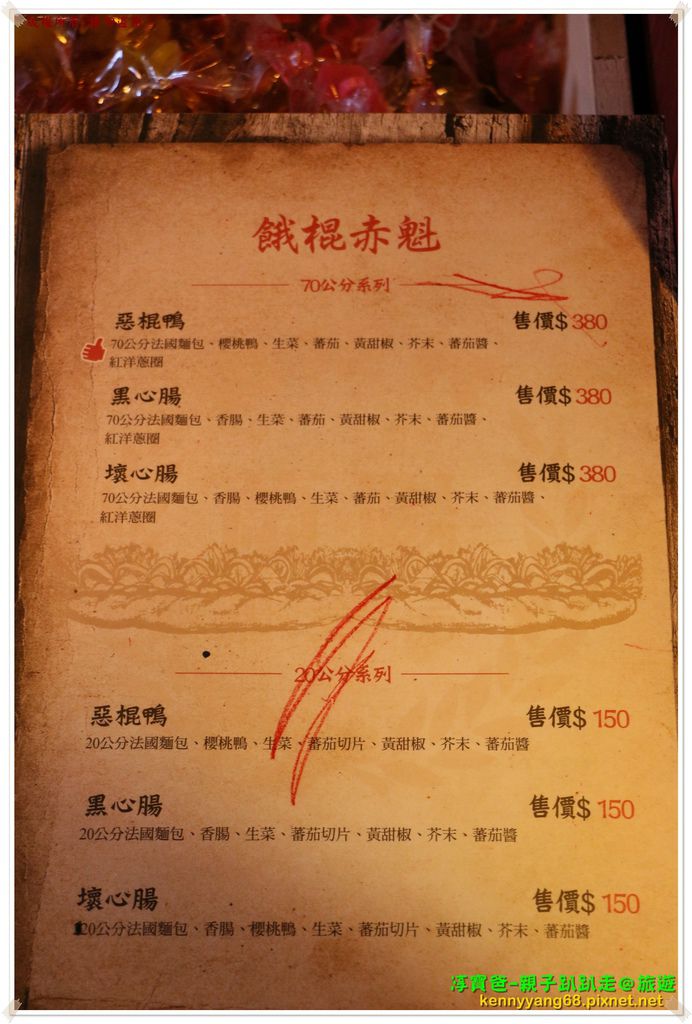 餓棍赤魁
70公分系列
惡棍鴨 售價$ 380
70公分法國麵包、櫻桃鴨、生菜、蕃茄、黃甜椒、芥末、蕃茄醬、
紅洋蔥圈
黑心腸 售價$ 380
70公分法國麵包、香腸、生菜、蕃茄、黃甜椒、芥末、蕃茄醬、
紅洋蔥圈
壞心腸 售價$ 380
70公分法國麵包、香腸、櫻桃鴨、生菜、蕃茄、黃甜椒、芥末、蕃茄醬、
紅洋蔥圈
20公分系列
惡棍鴨 售價$ 150
20公分法國麵包、櫻桃鴨、生菜、蕃茄切片、黃甜椒、芥末、蕃茄醬
黑心腸 售價$ 150
20公分法國麵包、香腸、生菜、蕃茄切片、黃甜椒、芥末、蕃茄醬
壞心腸 售價$ 150
20公分法國麵包、香腸、櫻桃鴨、生菜、蕃茄切片、黃甜椒、芥末、蕃茄醬
淳寶爸-親子趴趴走@旅遊
kennyyang68.pixnet.net